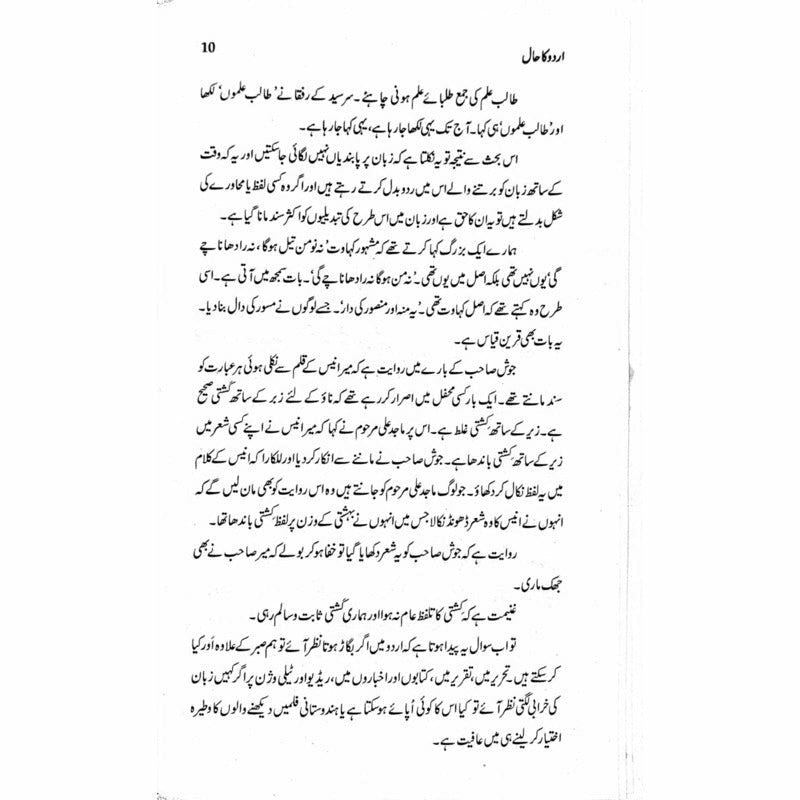 اردو کا حال
10
طالب علم کی جمع طلبائے علم ہونی چاہئے۔ سرسید کے رفقا نے ’طالب علموں‘ لکھا
اور ’طالب علموں‘ ہی کہا۔ آج تک یہی لکھا جا رہا ہے، یہی کہا جا رہا ہے۔
اس بحث سے نتیجہ تو یہ نکلتا ہے کہ زبان پر پابندیاں نہیں لگائی جا سکتیں اور یہ کہ وقت
کے ساتھ زبان کو برتنے والے اس میں ردوبدل کرتے رہتے ہیں اور اگر وہ کسی لفظ یا محاورے کی
شکل بدلتے ہیں تو یہ ان کا حق ہے اور زبان میں اس طرح کی تبدیلیوں کو اکثر سند مانا گیا ہے۔
ہمارے ایک بزرگ کہا کرتے تھے کہ مشہور کہاوت ’نہ نو من تیل ہوگا، نہ رادھا ناچے
گی‘ یوں نہیں تھی بلکہ اصل میں یوں تھی۔ ’نہ من ہوگا نہ رادھا ناچے گی‘۔ بات سمجھ میں آتی ہے۔ اسی
طرح وہ کہتے تھے کہ اصل کہاوت تھی۔ ’یہ منہ اور منصور کی دار‘۔ جسے لوگوں نے مسور کی دال بنا دیا۔
یہ بات بھی قرین قیاس ہے۔
جوش صاحب کے بارے میں روایت ہے کہ میر انیس کے قلم سے نکلی ہوئی ہر عبارت کو
سند مانتے تھے۔ ایک بار کسی محفل میں اصرار کر رہے تھے کہ ناؤ کے لئے زبر کے ساتھ کَشتی صحیح
ہے۔ زیر کے ساتھ کِشتی غلط ہے۔ اس پر ماجد علی مرحوم نے کہا کہ میر انیس نے اپنے کسی شعر میں
زیر کے ساتھ کِشتی باندھا ہے۔ جوش صاحب نے ماننے سے انکار کر دیا اور للکارا کہ انیس کے کلام
میں یہ لفظ نکال کر دکھاؤ۔ جو لوگ ماجد علی مرحوم کو جانتے ہیں وہ اس روایت کو بھی مان لیں گے کہ
انہوں نے انیس کا وہ شعر ڈھونڈ نکالا جس میں انہوں نے بہشتی کے وزن پر لفظ کِشتی باندھا تھا۔
روایت ہے کہ جوش صاحب کو یہ شعر دکھایا گیا تو خفا ہو کر بولے کہ میر صاحب نے بھی
جھک ماری۔
غنیمت ہے کہ کِشتی کا تلفظ عام نہ ہوا اور ہماری کَشتی ثابت و سالم رہی۔
تو اب سوال یہ پیدا ہوتا ہے کہ اردو میں اگر بگاڑ ہوتا نظر آئے تو ہم صبر کے علاوہ اَور کیا
کر سکتے ہیں۔ تحریر میں، تقریر میں، کتابوں اور اخباروں میں، ریڈیو اور ٹیلی وژن پر اگر کہیں زبان
کی خرابی لگتی نظر آئے تو کیا اس کا کوئی اُپائے ہو سکتا ہے یا ہندوستانی فلمیں دیکھنے والوں کا وطیرہ
اختیار کر لینے ہی میں عافیت ہے۔